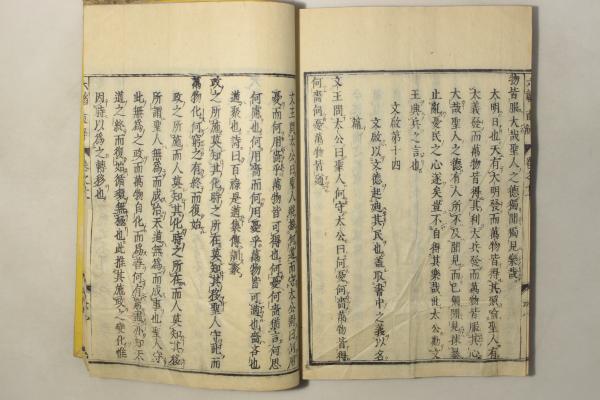 物皆服大哉聖人之德獨聞獨見樂哉
大明日也天有大明發而萬物皆得其照喻聖人有
大義發而萬物皆得其利大兵發而萬物皆服其心
大哉聖人之德有人所不及聞見而已獨聞見抹暴
止亂憂民之心遂矣豈不自得其樂哉此太公勸文
王興兵之言也
文啟第十四
文啟以文德起迪其民也蓋取書中之義以名
篇
文王問太公曰聖人何守太公曰何憂何嗇萬物皆得
何嗇何憂萬物皆遒
文王問太公曰聖人
何慮也何用嗇而何用憂乎萬物皆可遒也嗇言也
遒聚也詩曰百祿是遒集傳訓聚
政之所施莫知其化時之所在莫知其移聖人守此而
萬物化何窮之有終而復始
政之所施而人莫知其化時之所在而人莫知其移
所謂聖人無為而成治天道無為而成事也聖人守
此無為之政而萬物自化
道之終而復始循環無極也此推其施政之變化惟
因時以為之轉移也